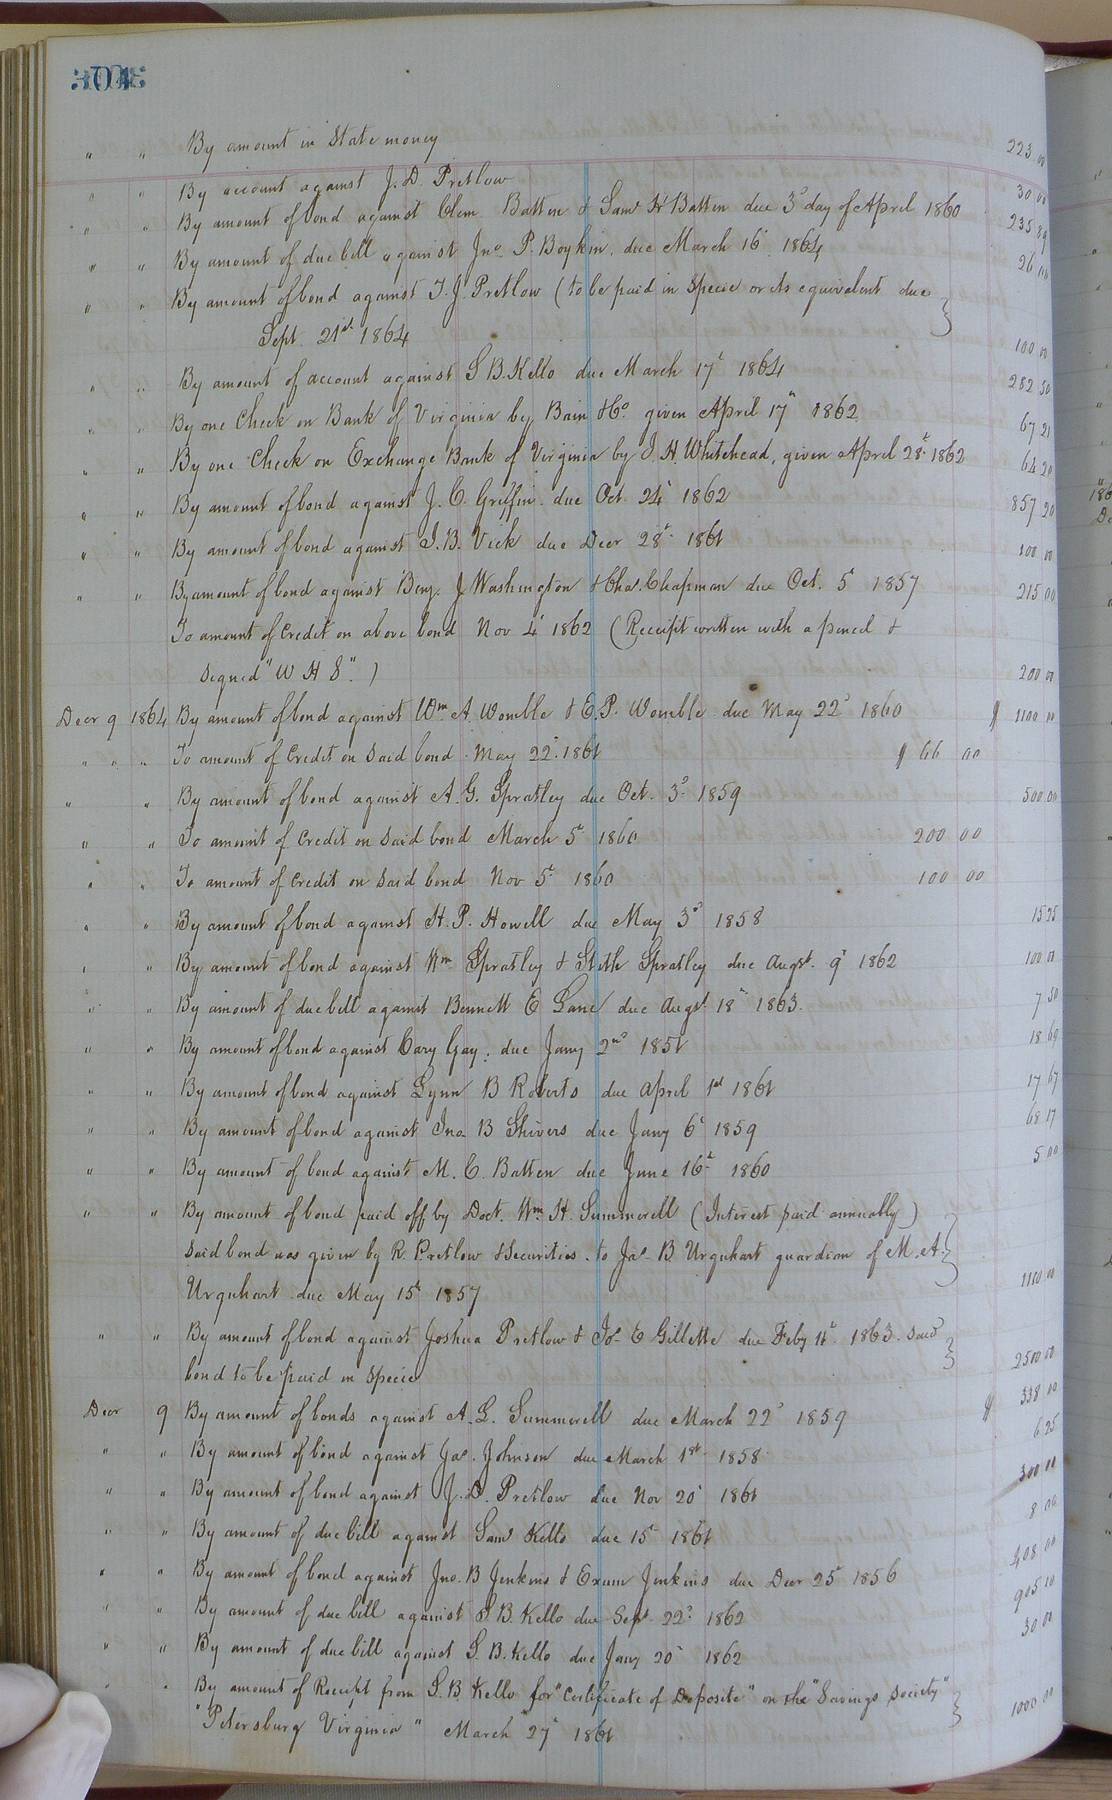 304
" " By amount in State money 223 00
" " By account against J. D. Pretlow 30 00
" " By amount of bond against Clem Batten & Saml H Batten due 3d day of April 1860 235 89
" " By amount of due bill against Jno P. Boykin, due March 16 1864 26 00
" " By amount of bond against T. J. Pretlow (to be paid in Specie or its equivalent due
Sept. 21st 1864 100 00
" " By amount of account against S B. Kello due March 17t 1864 282 50
" " By one Check on Bank of Virginia by Bain & Co. given April 17th 1862 67 21
" " By one Check on Exchange Bank of Virginia by J. H. Whitehead, given April 28t 1862 64 20
" " By amount of bond against J. C. Griffin due Oct. 24t 1862 857 20
" " By amount of bond against J. B. Vick due Decr 28t 1861 100 00
" " By amount of bond against Benj. J Washington & Chas. Chapman due Oct. 5t 1857 215 00
To amount of Credit on above bond Nov 4t 1862 (Receipt written with a pencil &
signed "W H S".) 200 00
Decr 9 1864 By amount of bond against Wm A Womble & E. P. Womble due May 22d 1860 $ 1100 00
" " " To amount of Credit on said bond May 22d 1861 $ 66 00
" " By amount of bond against A. G. Spratley due Oct. 3d 1859 500 00
" " To amount of Credit on said bond March 5t 1860 200 00
" " To amount of Credit on said bond Nov 5t 1860 100 00
" " By amount of bond against H. P. Howell due May 3d 1858 15 25
" " By amount of bond against Wm Spratley & Stith Spratley due Augst. 9t 1862 100 00
" " By amount of due bill against Bennett E Lane due Augst 18th 1863. 7 50
" " By amount of bond against Cary Gay, due Jany 2nd 1851 18 69
" " By amount of bond against Lynn B Roberts due April 1st 1861 17 67
" " By amount of bond against Jno B Shivers due Jany 6t 1859 68 17
" " By amount of bond against M. C. Batten due June 16t 1860 5 00
" " By amount of bond paid off by Doct. Wm. H. Summerell (Interest paid annually)
Said bond was given by R. Pretlow & Securities to Jas B Urquhart guardian of M. A.
Urquhart due May 15t 1857 1100 00
" " By amount of bond against Joshua Pretlow & Jos E Gillette due Feby 11t 1863. said
bond to be paid in Specie 2500 00
Decr 9 By amount of bonds against A. L. Summerell due March 22d 1859 $ 338 00
" " By amount of bond against Jas. Johnson due March 1st 1858 6 25
" " By amount of bond against J. D. Pretlow due Nov 20t 1861 300 00
" " By amount of due bill against Saml Kello due 15t 1861 8 00
" " By amount of bond against Jno. B Jenkins & Exum Jenkins due Decr 25t 1856 408 00
" " By amount of due bill against S. B. Kello due Sept 22d 1862 905 10
" " By amount of due bill against S. B. Kello due Jany 20t 1862 30 00
" " By amount of Receipt from S. B. Kello for "Certificate of Deposite" on the "Savings Society"
"Petersburg Virginia" March 27t 1861 1000 00